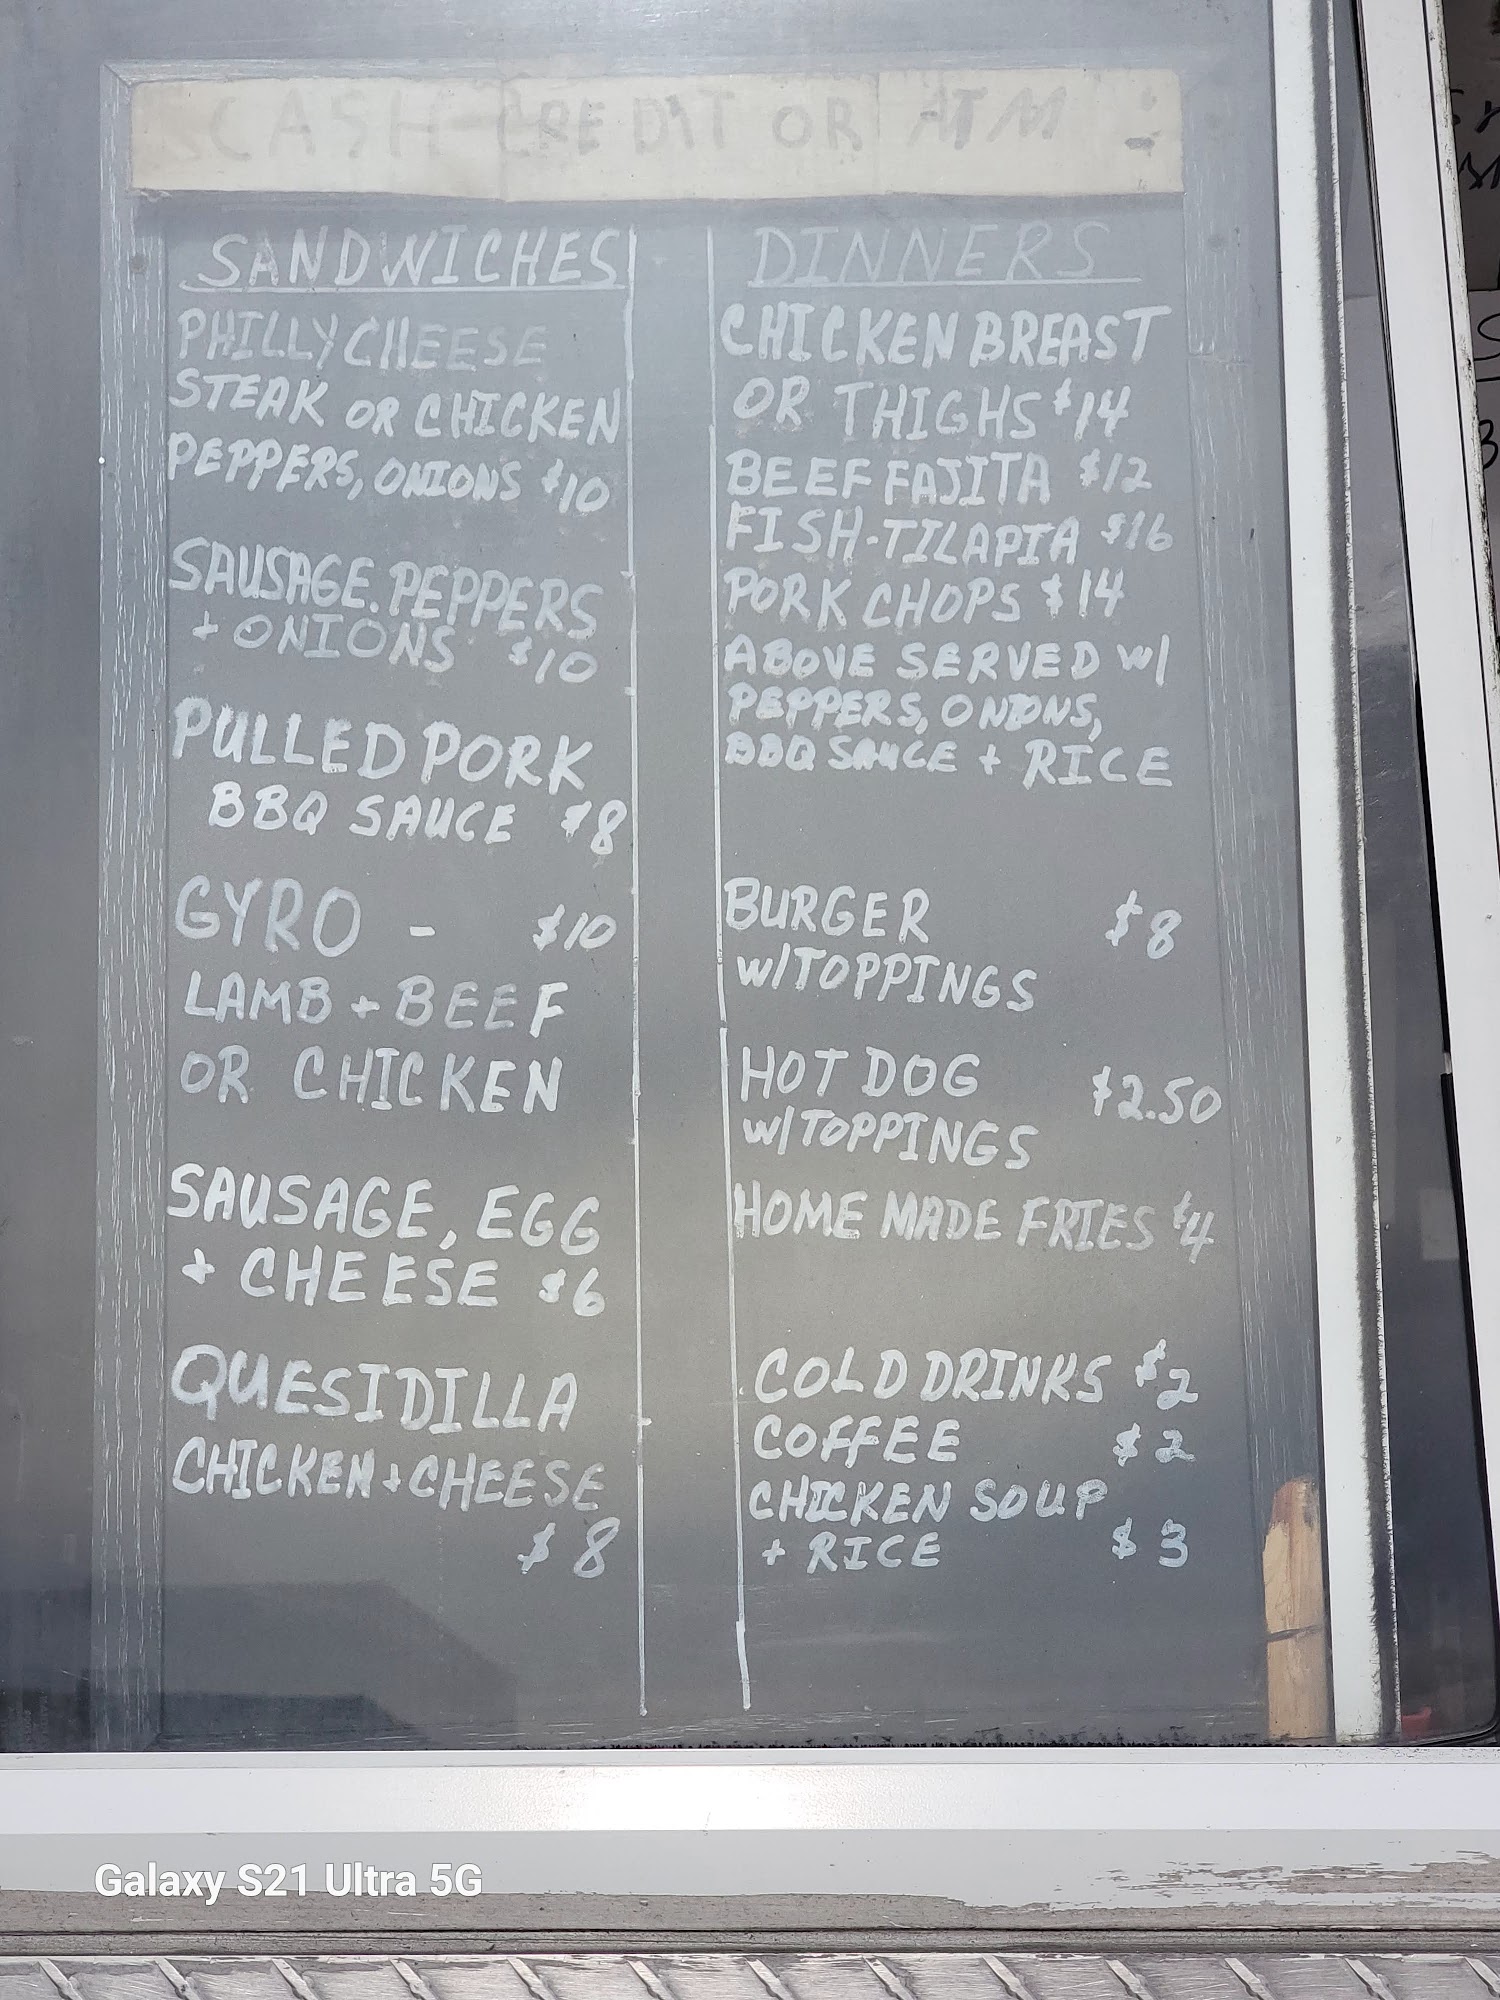 CASH CREDIT OR ATM
SANDWICHES
PHILLY CHEESE
STEAK OR CHICKEN
PEPPERS, ONIONS $10
SAUSAGE. PEPPERS
+ ONIONS $10
PULLED PORK
BBQ SAUCE $8
GYRO - $10
LAMB + BEEF
OR CHICKEN
SAUSAGE, EGG
+ CHEESE $6
QUESIDILLA
CHICKEN + CHEESE
$8
DINNERS
CHICKEN BREAST
OR THIGHS $14
BEEF FAJITA $12
FISH-TILAPIA $16
PORK CHOPS $14
ABOVE SERVED w/
PEPPERS, ONIONS,
BBQ SAUCE + RICE
BURGER $8
w/TOPPINGS
HOT DOG $2.50
w/TOPPINGS
HOME MADE FRIES $4
COLD DRINKS $2
COFFEE $2
CHICKEN SOUP
+ RICE $3
Galaxy S21 Ultra 5G